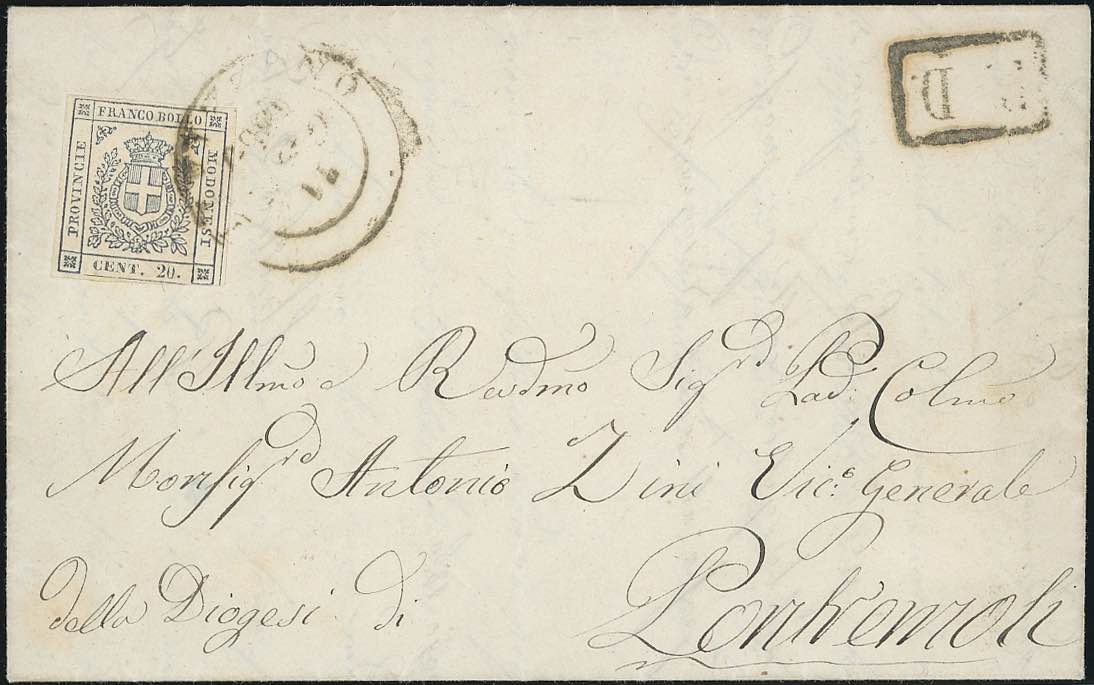 FRANCO BOLLO
PROVINCIE
MODONESI
CENT. 20.
P. D.
All' Illmo e Revdmo Sigrd Pad. Colmo
Monsigrd Antonio Zini Vico. Generale
della Diogesi di
Pontremoli